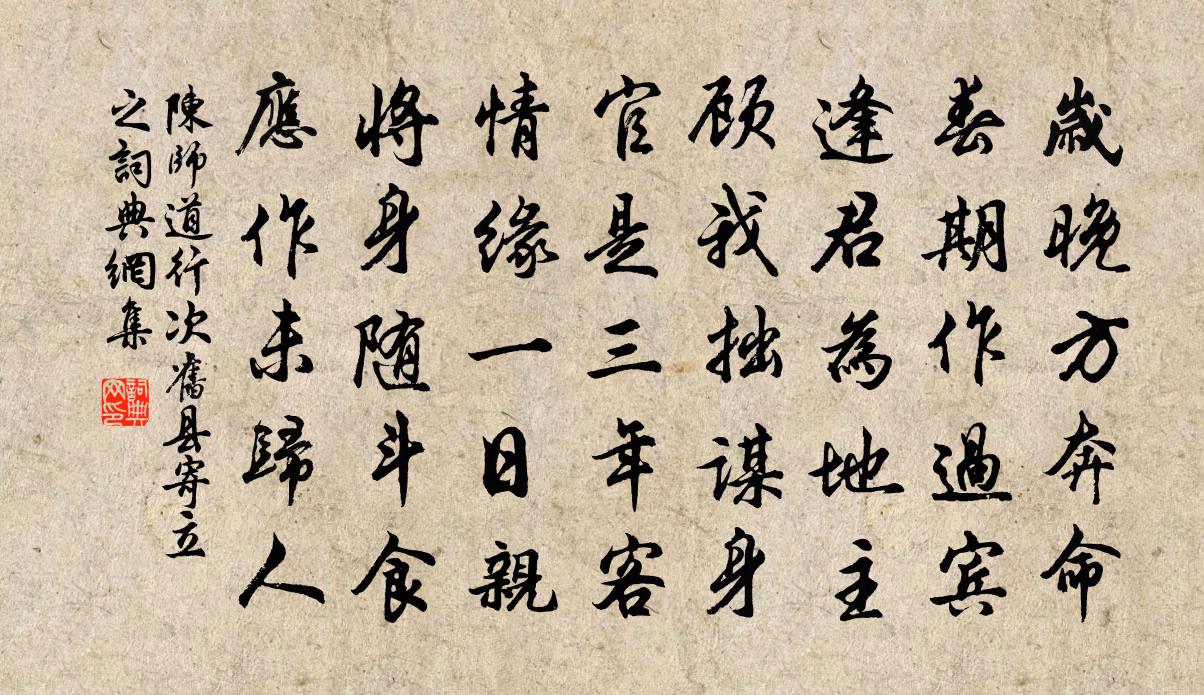 歲晚方奔命
春期作過宾
逢君為地主
顾我拙謀身
官是三年客
情缘一日親
將身随斗食
應作未歸人
陳師道行次舊县寄立
之詞典網集
詞典
网印